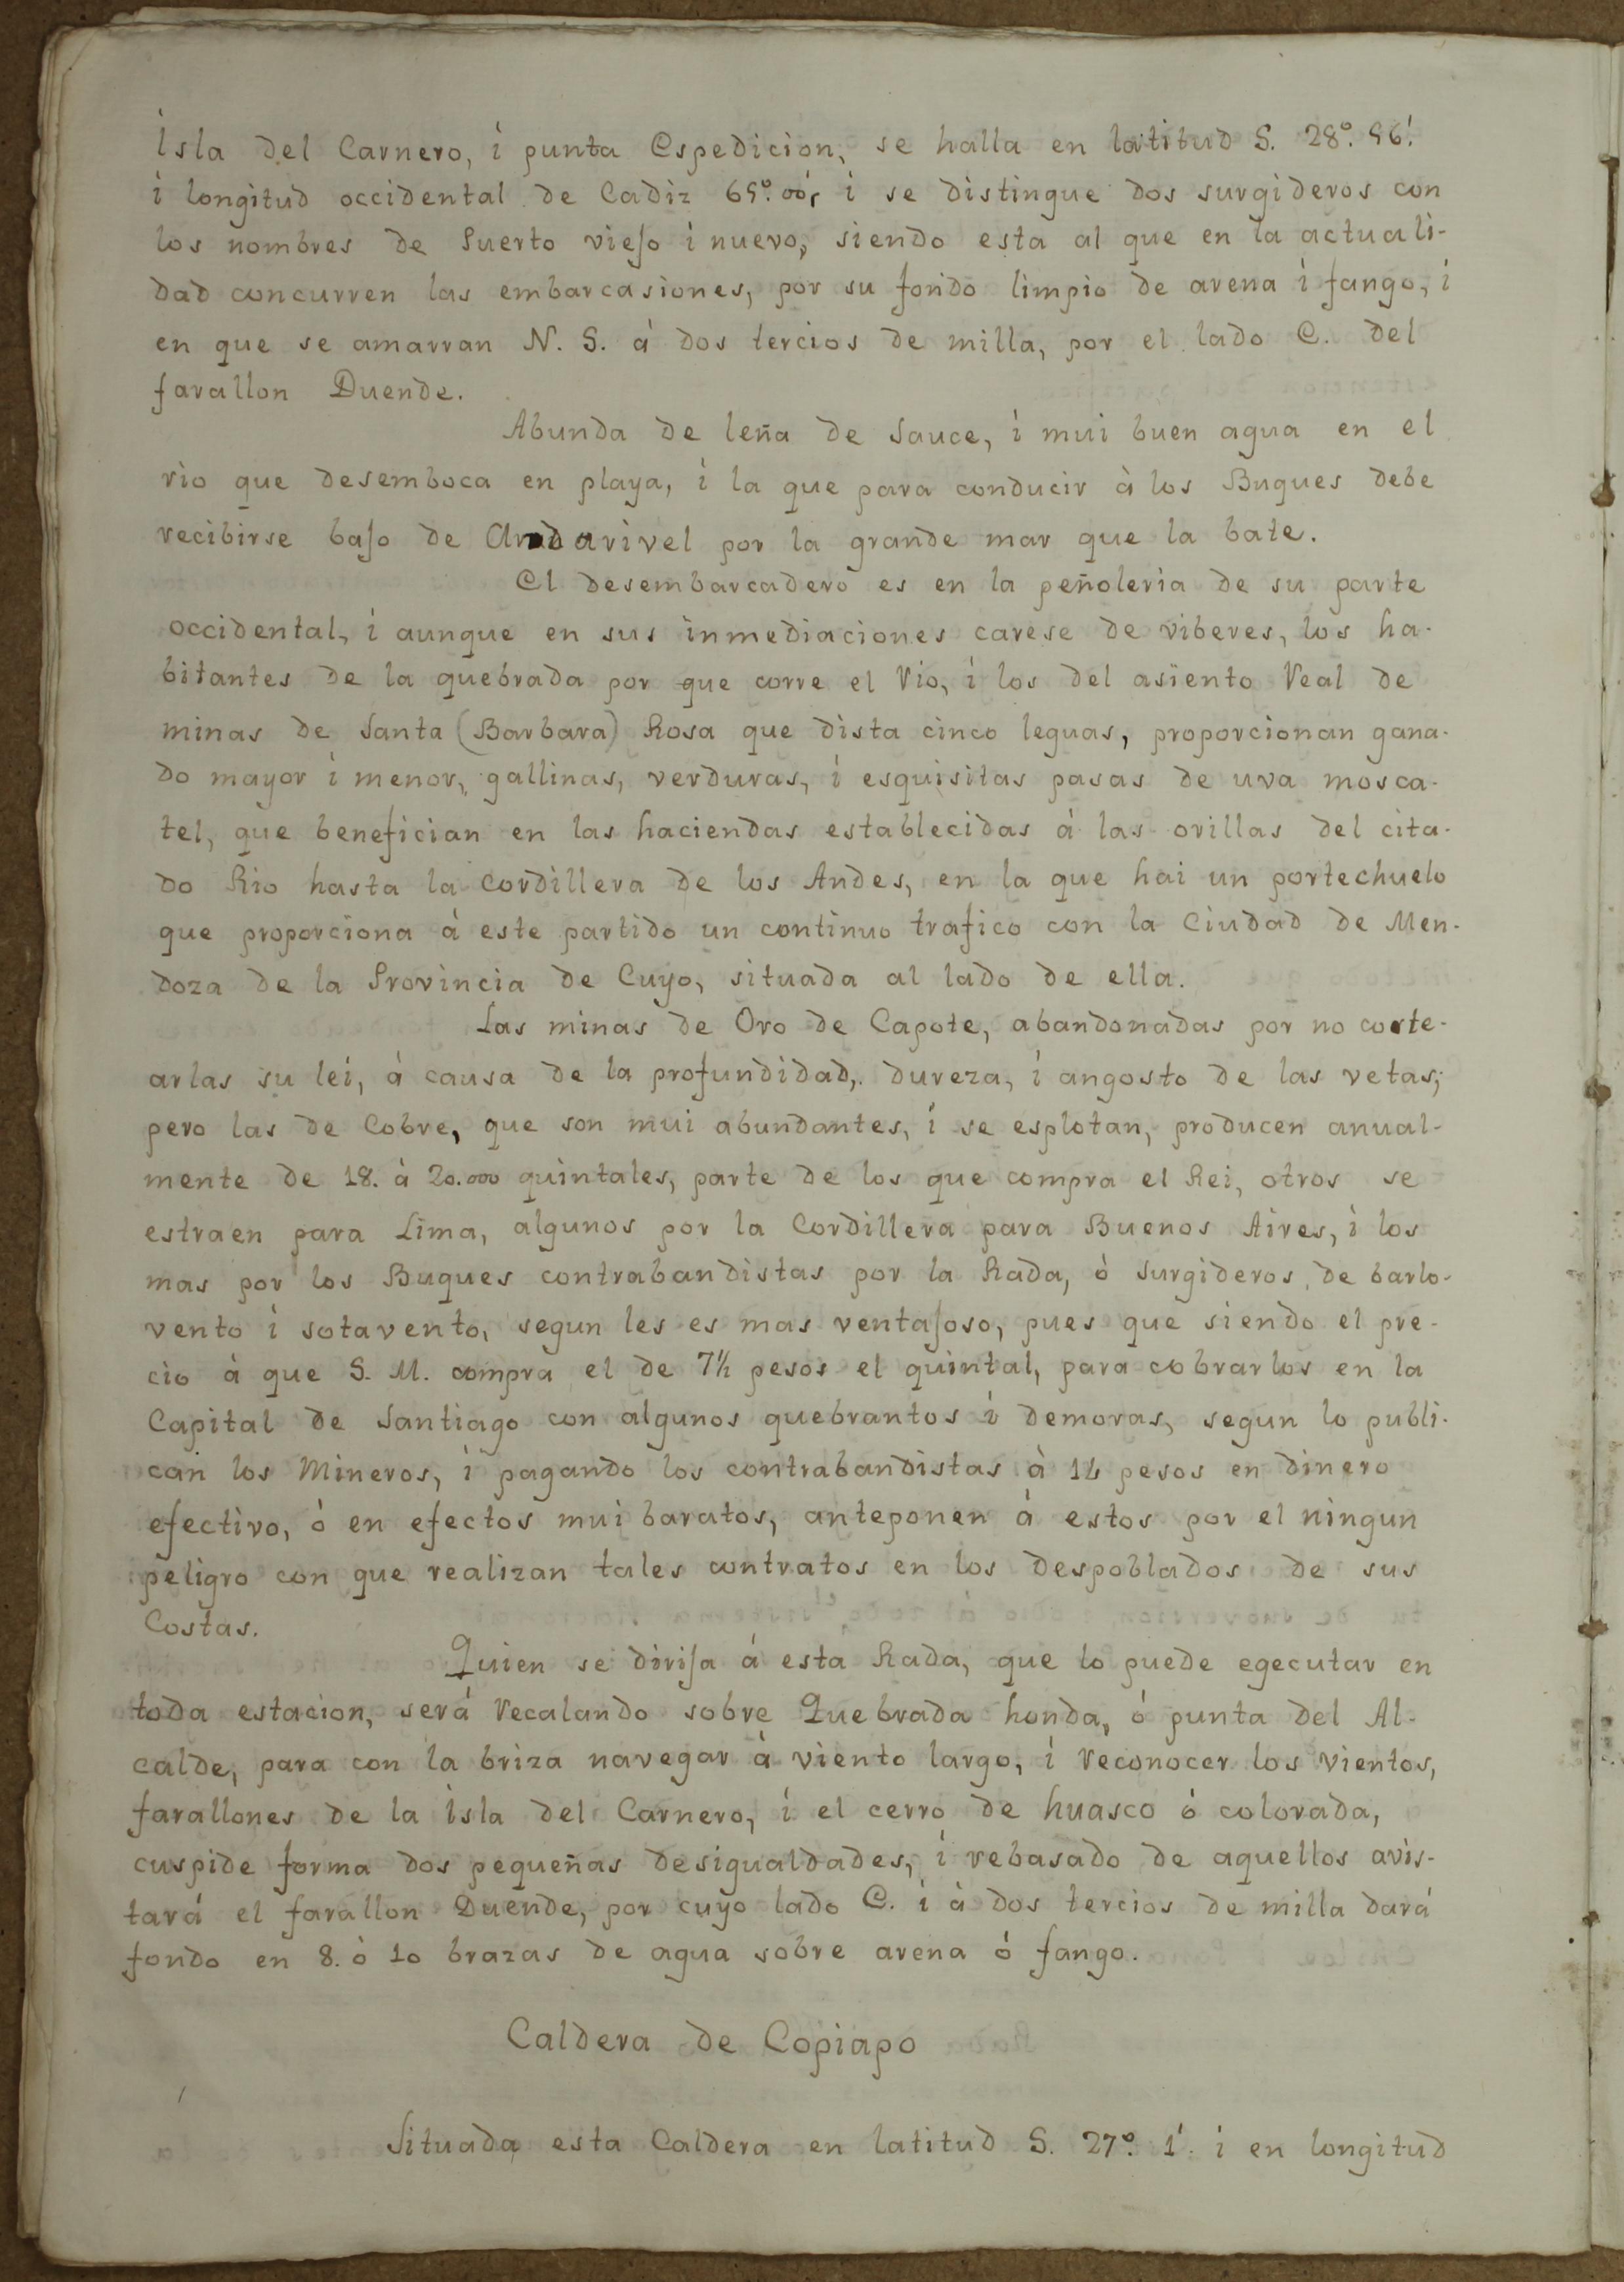 Isla del Carnero, i punta Espedicion, se halla en latitud S. 28°. 56!
i longitud occidental de Cadiz 65°. 00', i se distingue dos surgideros con
los nombres de Puerto viejo i nuevo, siendo esta al que en la actuali-
dad concurren las embarcasiones, por su fondo limpio de arena i fango, i
en que se amarran N. S. á dos tercios de milla, por el lado E. del
farallon Duende.
Abunda de leña de Sauce, i mui buen agua en el
rio que desemboca en playa, i la que para conducir à los Buques debe
recibirse bajo de Andarivel por la grande mar que la bate.
El desembarcadero es en la peñoleria de su parte
occidental, i aunque en sus inmediaciones carese de viberes, los ha-
bitantes de la quebrada por que corre el Rio, i los del asiento Real de
minas de Santa (Barbara) Rosa que dista cinco leguas, proporcionan gana-
do mayor i menor, gallinas, verduras, i esquisitas pasas de uva mosca-
tel, que benefician en las haciendas establecidas á las orillas del cita-
do Rio hasta la cordillera de los Andes, en la que hai un portechuelo
que proporciona à este partido un continuo trafico con la Ciudad de Men-
doza de la Provincia de Cuyo, situada al lado de ella.
Las minas de Oro de Capote, abandonadas por no corte-
arlas su lei, á causa de la profundidad, dureza, i angosto de las vetas;
pero las de Cobre, que son mui abundantes, i se esplotan, producen anual-
mente de 18. à 20.000 quintales, parte de los que compra el Rei, otros se
estraen para Lima, algunos por la Cordillera para Buenos Aires, i los
mas por los Buques contrabandistas por la Rada, ò surgideros de barlo-
vento i sotavento, segun les es mas ventajoso, pues que siendo el pre-
cio à que S. M. compra el de 7½ pesos el quintal, para cobrarlos en la
Capital de Santiago con algunos quebrantos i demoras, segun lo publi-
can los Mineros, i pagando los contrabandistas à 14 pesos en dinero
efectivo, ò en efectos mui baratos, anteponen á estos por el ningun
peligro con que realizan tales contratos en los despoblados de sus
Costas.
Quien se dirija á esta Rada, que lo puede egecutar en
toda estacion, será recalando sobre Quebrada honda, ó punta del Al-
calde, para con la briza navegar à viento largo, i reconocer los vientos,
farallones de la isla del Carnero, i el cerro de huasco ó colorada,
cuspide forma dos pequeñas desigualdades, i rebasado de aquellos avis-
tará el farallon Duende, por cuyo lado E. i à dos tercios de milla dará
fondo en 8. ò 10 brazas de agua sobre arena ó fango.
Caldera de Copiapo
Situada esta Caldera en latitud S. 27°. 1'. i en longitud